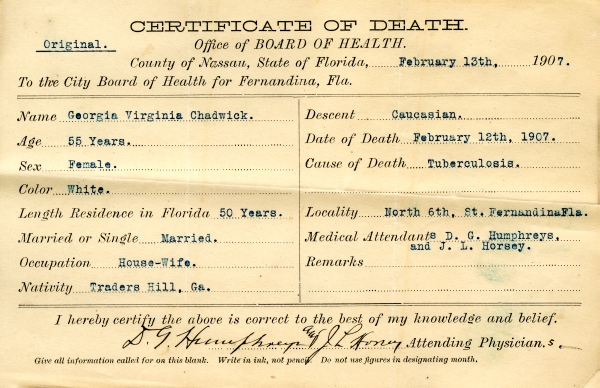 CERTIFICATE OF DEATH.
Original.
Office of BOARD OF HEALTH.
County of Nassau, State of Florida, February 13th, 1907.
To the City Board of Health for Fernandina, Fla.
Name Georgia Virginia Chadwick.
Age 55 Years.
Sex Female.
Color White.
Length Residence in Florida 50 Years.
Married or Single Married.
Occupation House-Wife.
Nativity Traders Hill, Ga.
Descent Caucasian.
Date of Death February 12th, 1907.
Cause of Death Tuberculosis.
Locality North 6th, St. FernandinaFla.
Medical Attendants D. G. Humphreys,
and J. L. Horsey.
Remarks
I hereby certify the above is correct to the best of my knowledge and belief.
D. G. Humphreys and J L Horsey Attending Physician.s.
Give all information called for on this blank. Write in ink, not pencil. Do not use figures in designating month.